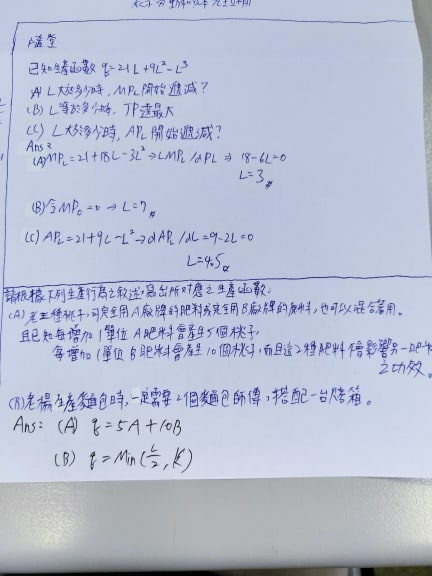 隨堂
已知生產函數 q=21L+9L²-L³
(A) L大於多少時, MPL開始遞減?
(B) L等於多少時, TP達最大
(C) L大於多少時, APL開始遞減?
Ans:
(A) MPL=21+18L-3L²→dMPL/dPL⇒18-6L=0
L=3
(B)令MPL=0→L=7
(C) APL=21+9L-L²→dAPL/dL=9-2L=0
L=4.5
請根據下列生產行為之敘述,寫出所對應之生產函數:
(A)老王種桃子,可完全用A廠牌的肥料或完全用B廠牌的肥料,也可以混合著用。
且已知每增加1單位A肥料會產生5個桃子,
每增加1單位B肥料會產生10個桃子,而且這2種肥料不會影響另一肥料
之功效。
(B)老楊生產麵包時,一定需要2個麵包師傅,搭配一台烤箱。
Ans: (A) q=5A+10B
(B) q=Min(L/2,K)